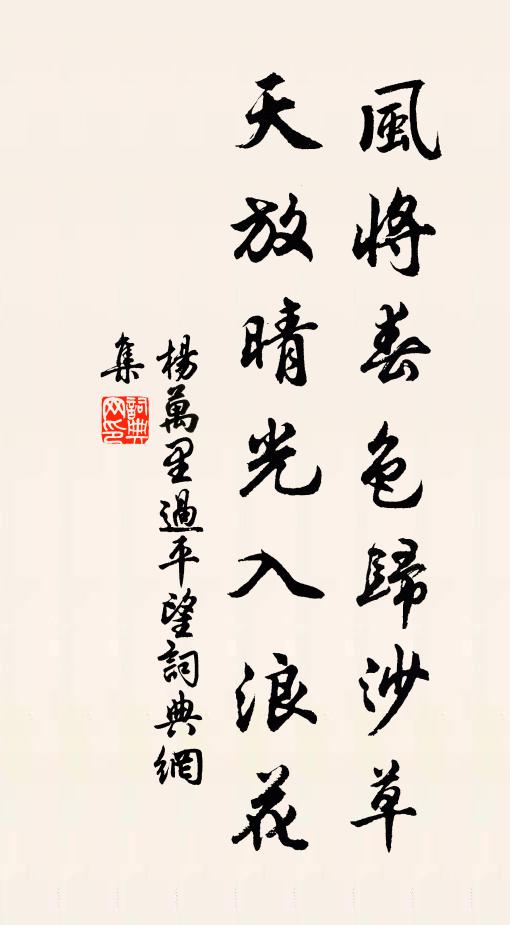 風將春色歸沙草
天放晴光入浪花
楊萬里過平望詞典網
集
詞典
网印